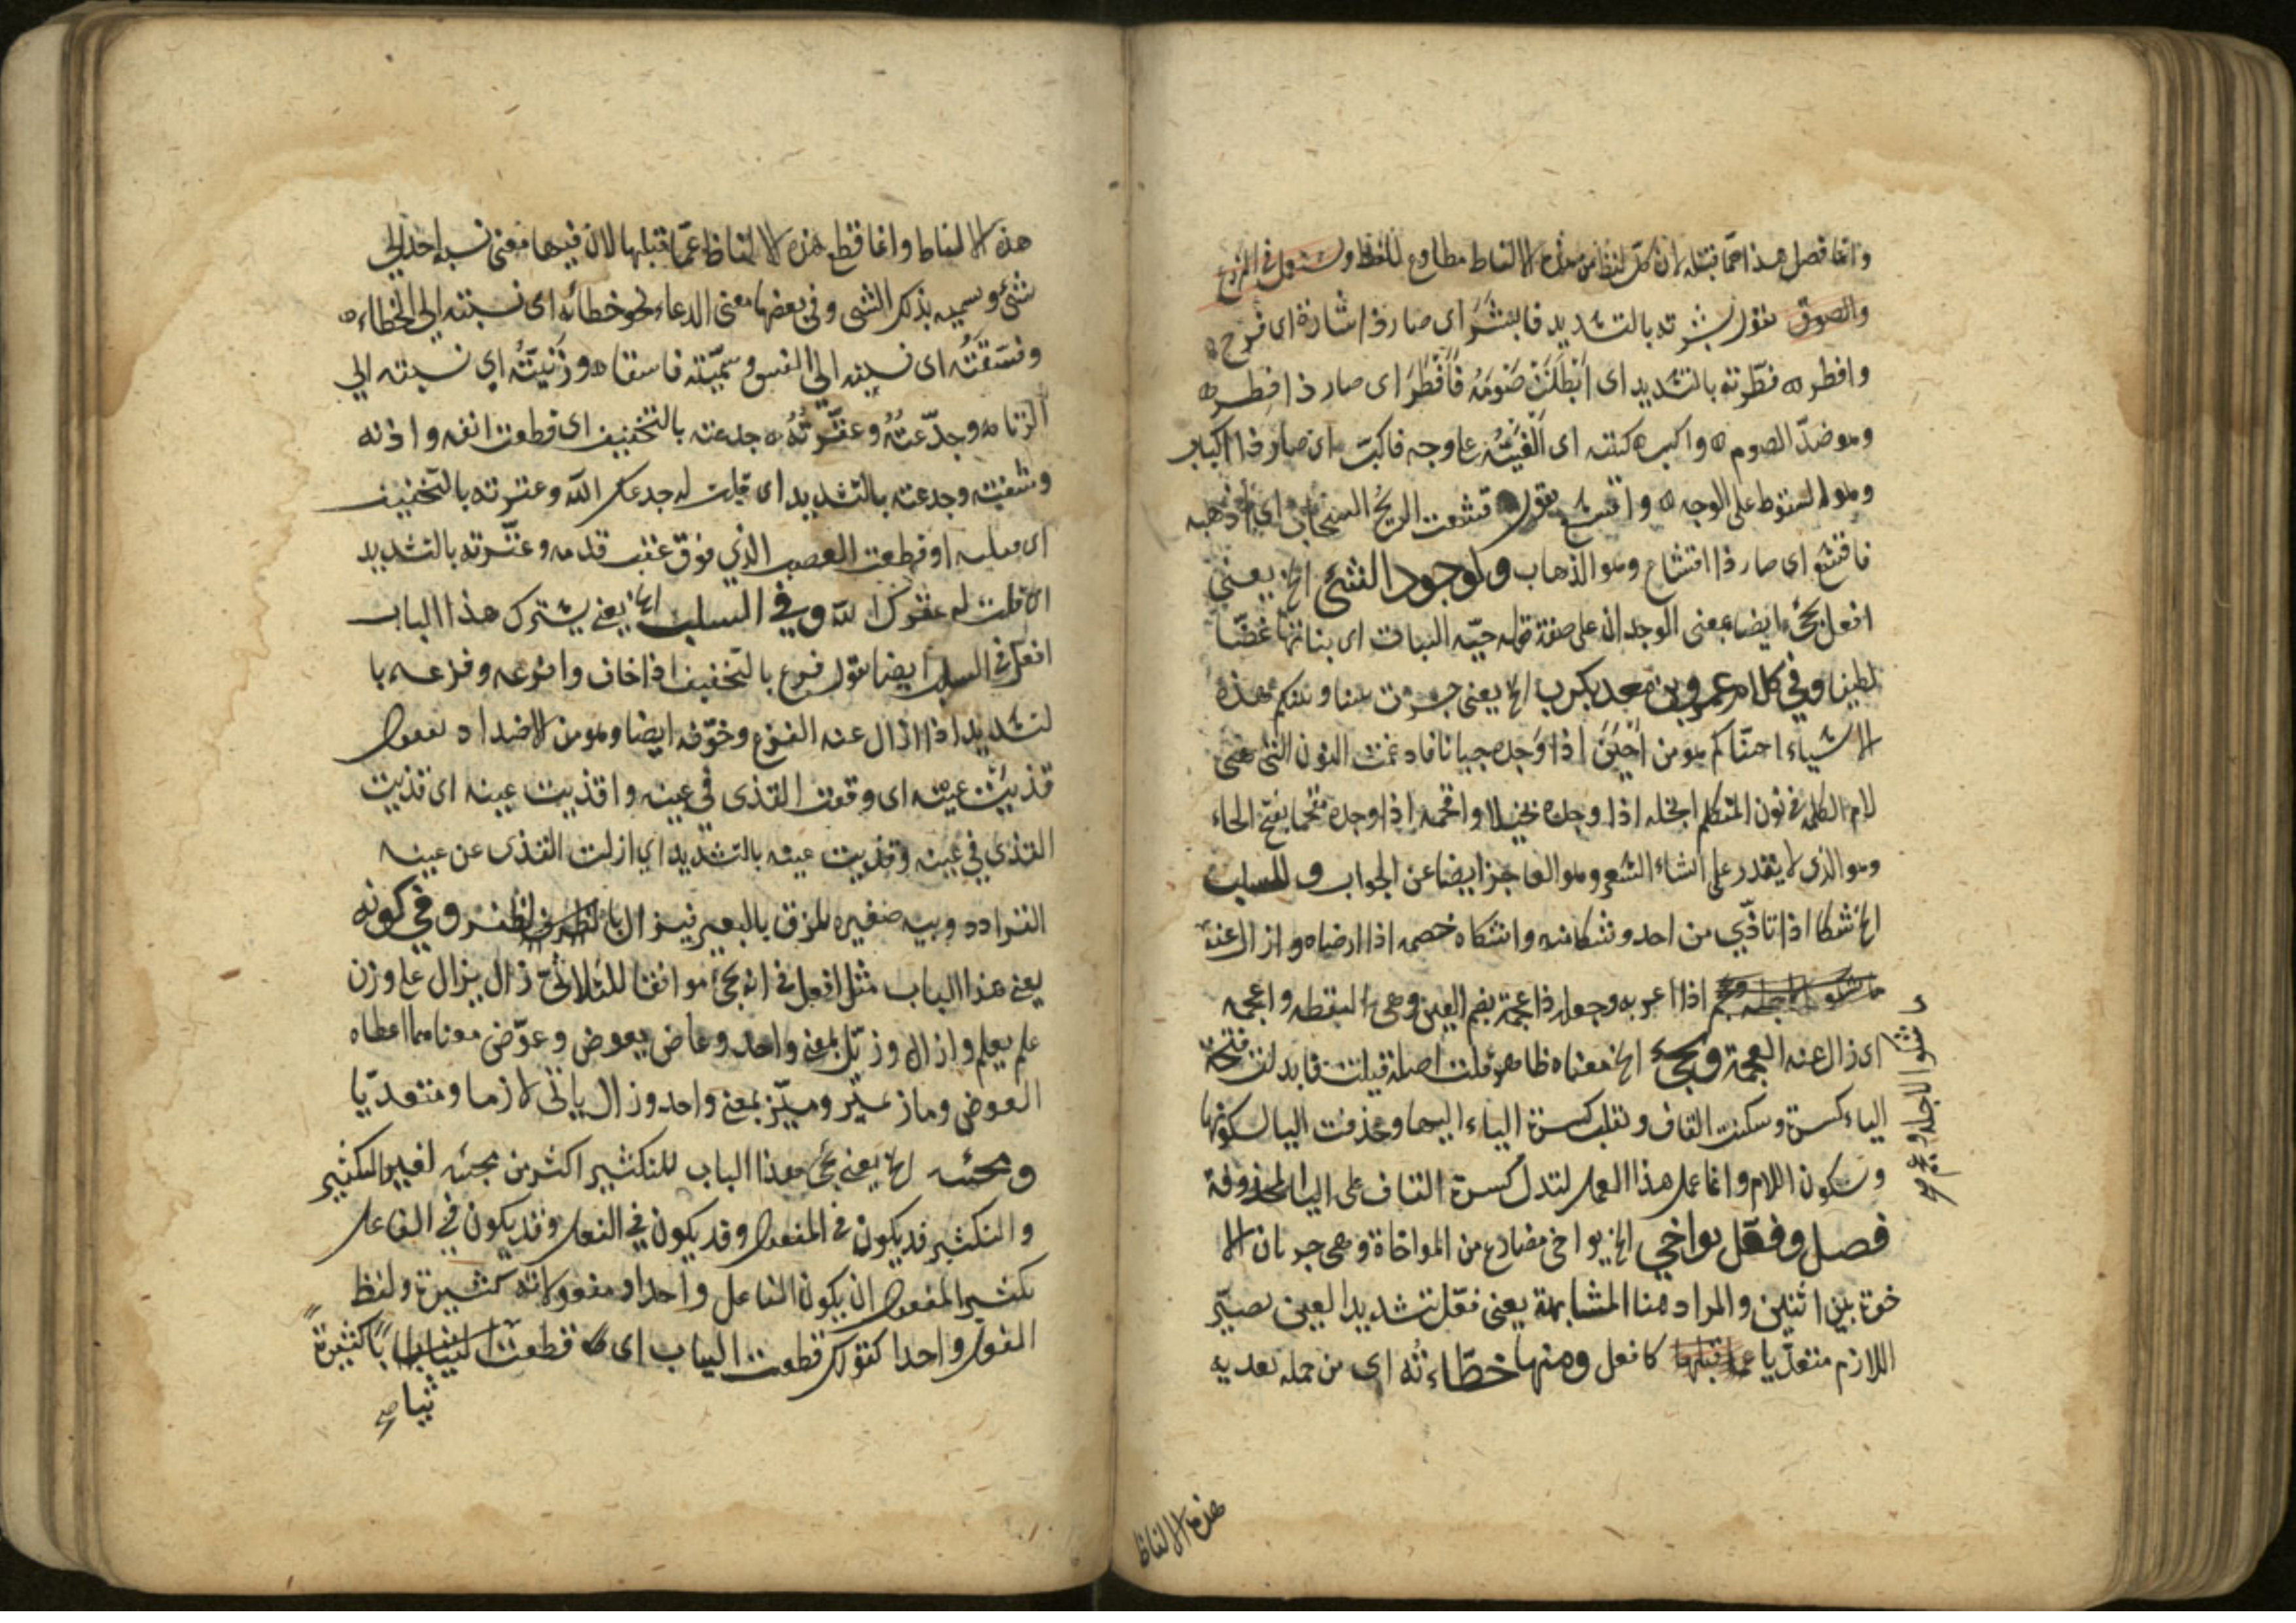 وانما فصل هذا عما قبله لان كل لفظ من هذه الالفاظ مطاوع للفظ
والصوق تقول بشرته بالتشديد فابشر اى صار ذا بشارة اى فرح
وافطر فطرته بالتشديد اى ابطلت صومه فافطر اى صار ذا فطر
وهو ضد الصوم واكب كببته اى القيته على وجهه فاكب اى صار ذا اكباب
وهو السقوط على الوجه واقشع يقول قشعت الريح السحاب اى اذهبه
فاقشع اى صار ذا اقشاع وهو الذهاب ولوجود الشئ الخ يعنى
افعل يجئ ايضا بمعنى الوجدان على صفة قوله حيه النبات اى بناتها غضا
لطيفا وفي كلام عمرو بن معد يكرب الخ يعنى جرت بيننا وبينكم هذه
الاشياء اجبناكم هو من اجبن اذا وجده جبانا فادغمت النون التى هى
لام الكلمة فى نون المتكلم ابخله اذا وجده بخيلا وافحمه اذا وجده مفحما بفتح الحاء
وهو الذى لا يقدر على انشاء الشعر وهو العاجز ايضا عن الجواب وللسلب
الخ شكا اذا تاذى من احد وشكا منه واشكاه خصمه اذا ارضاه وازال عنه
ما شكوا لاجله وعجم اذا اعربه وجعله ذا عجمة بضم العين وهى النقطه واعجمه
اى زال عنه العجمة ويجئ الخ معناه ظاهر قلت اصله قيلت فابدلت فتحة
الياء كسرة وسكنت القاف ونقلب كسرة الياء اليها وحذفت اليا لسكونها
وسكون اللام وانما عمل هذا العمل لتدل كسرة القاف على اليا المحذوفة
فصل وفعل يواخي الخ يواخى مضارع من المواخاة وهى جريان الا
خوة بين اثنين والمراد هنا المشابهة يعنى فعل بتشديد العين يصير
اللازم متعديا عما قبلها كافعل ومنها خطاءته اى من جمله تعديه
شكوا لاجله وعجم
هذه الالفاظ
هذه الالفاظ وانما قطع هذه الالفاظ عما قبلها لان فيها معنى نسبه احد الى
شئ وسميه بذلك الشى وفي بعضها معنى الدعاء نحو خطائه اى نسبته الى الخطاء
وفسقته اى نسبته الى الفسق وسميته فاسقا وزنيته اى نسبته الى
الزنا وجدعته وعقرته جدعته بالتخفيف اى قطعت انفه واذنه
وشفته وجدعته بالتشديد اى قلت له جدعك الله وعقرته بالتخفيف
او قطعت العصب الذي فوق عقب قدمه وعقرته بالتشديد
اى قلت له عقرك الله وفي السلب الخ يعنى يشترك هذا الباب
افعل فى السلب ايضا تقول فزع بالتخفيف اذا خاف وافزعه وفزعه با
لتشديد اذا ازال عنه الفزع وخوفه ايضا وهو من الاضداد تقول
قذيت عينه اى وقعت القذى في عينه واقذيت عينه اى قذيت
القذي في عينه وقذيت عينه بالتشديد اي ازلت القذى عن عينه
القراد دويبه صغيره يلزق بالبعير فيزال بالظفر وفي كونه
يعنى هذا الباب مثل افعل فى انه يجئ موافقا للثلاثى زال يزال على وزن
علم يعلم وازال وزيل بمعنى واحد وعاض يعوض وعوض معناهما اعطاه
العوض وماز يميز وميز بمعنى واحد وزال ياتى لازما ومتعديا
ومجئه الخ يعنى يجئ هذا الباب للتكثير اكثر من مجئه لغير التكثير
والتكثير قد يكون فى المفعول وقد يكون في الفعل وقد يكون في الفاعل
تكثير المفعول ان يكون الفاعل واحدا ومفعولاته كثيرة ولفظ
المفعول واحدا كقولك قطعت الثياب اى قطعت ثيابا كثيرة
ثيابا صح